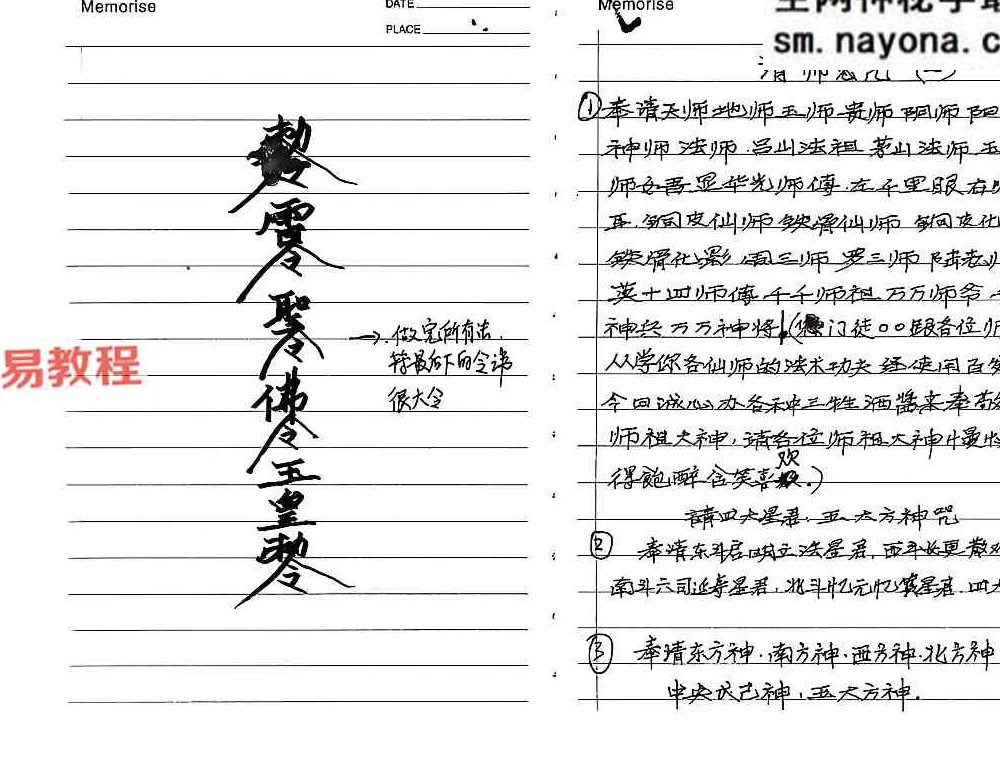 Memorise
DATE
PLACE
靈
聖
佛
玉
皇
勅令
→做完所有法,
持最后下的令讳
很大令
易教程
Memorise
全网神秘学最
sm.nayona.c
请师总咒(一)
① 奉请天师地师玉师 师阴师阳
神师法师.吕山法祖茅山法师玉
师 吾显华光师傅.左千里眼右
耳.铜皮仙师铁骨仙师铜皮化
铁骨化影.雷三师罗三师陆老师
英十四师傅.千千师祖万万师爷
神兵万万神将!( 门徒○○跟各位师
从学你各仙师的法术功夫经使用百
今日诚心办各种三牲酒酱来奉敬
师祖大神,请各位师祖大神慢慢
得饱醉含笑喜欢.)
請四大星君.五大方神咒
② 奉请东斗 星君.西斗 更
南斗六司延寿星君.北斗 元 星君.四大
③ 奉请东方神.南方神.西方神.北方神
中央戊己神,五大方神.